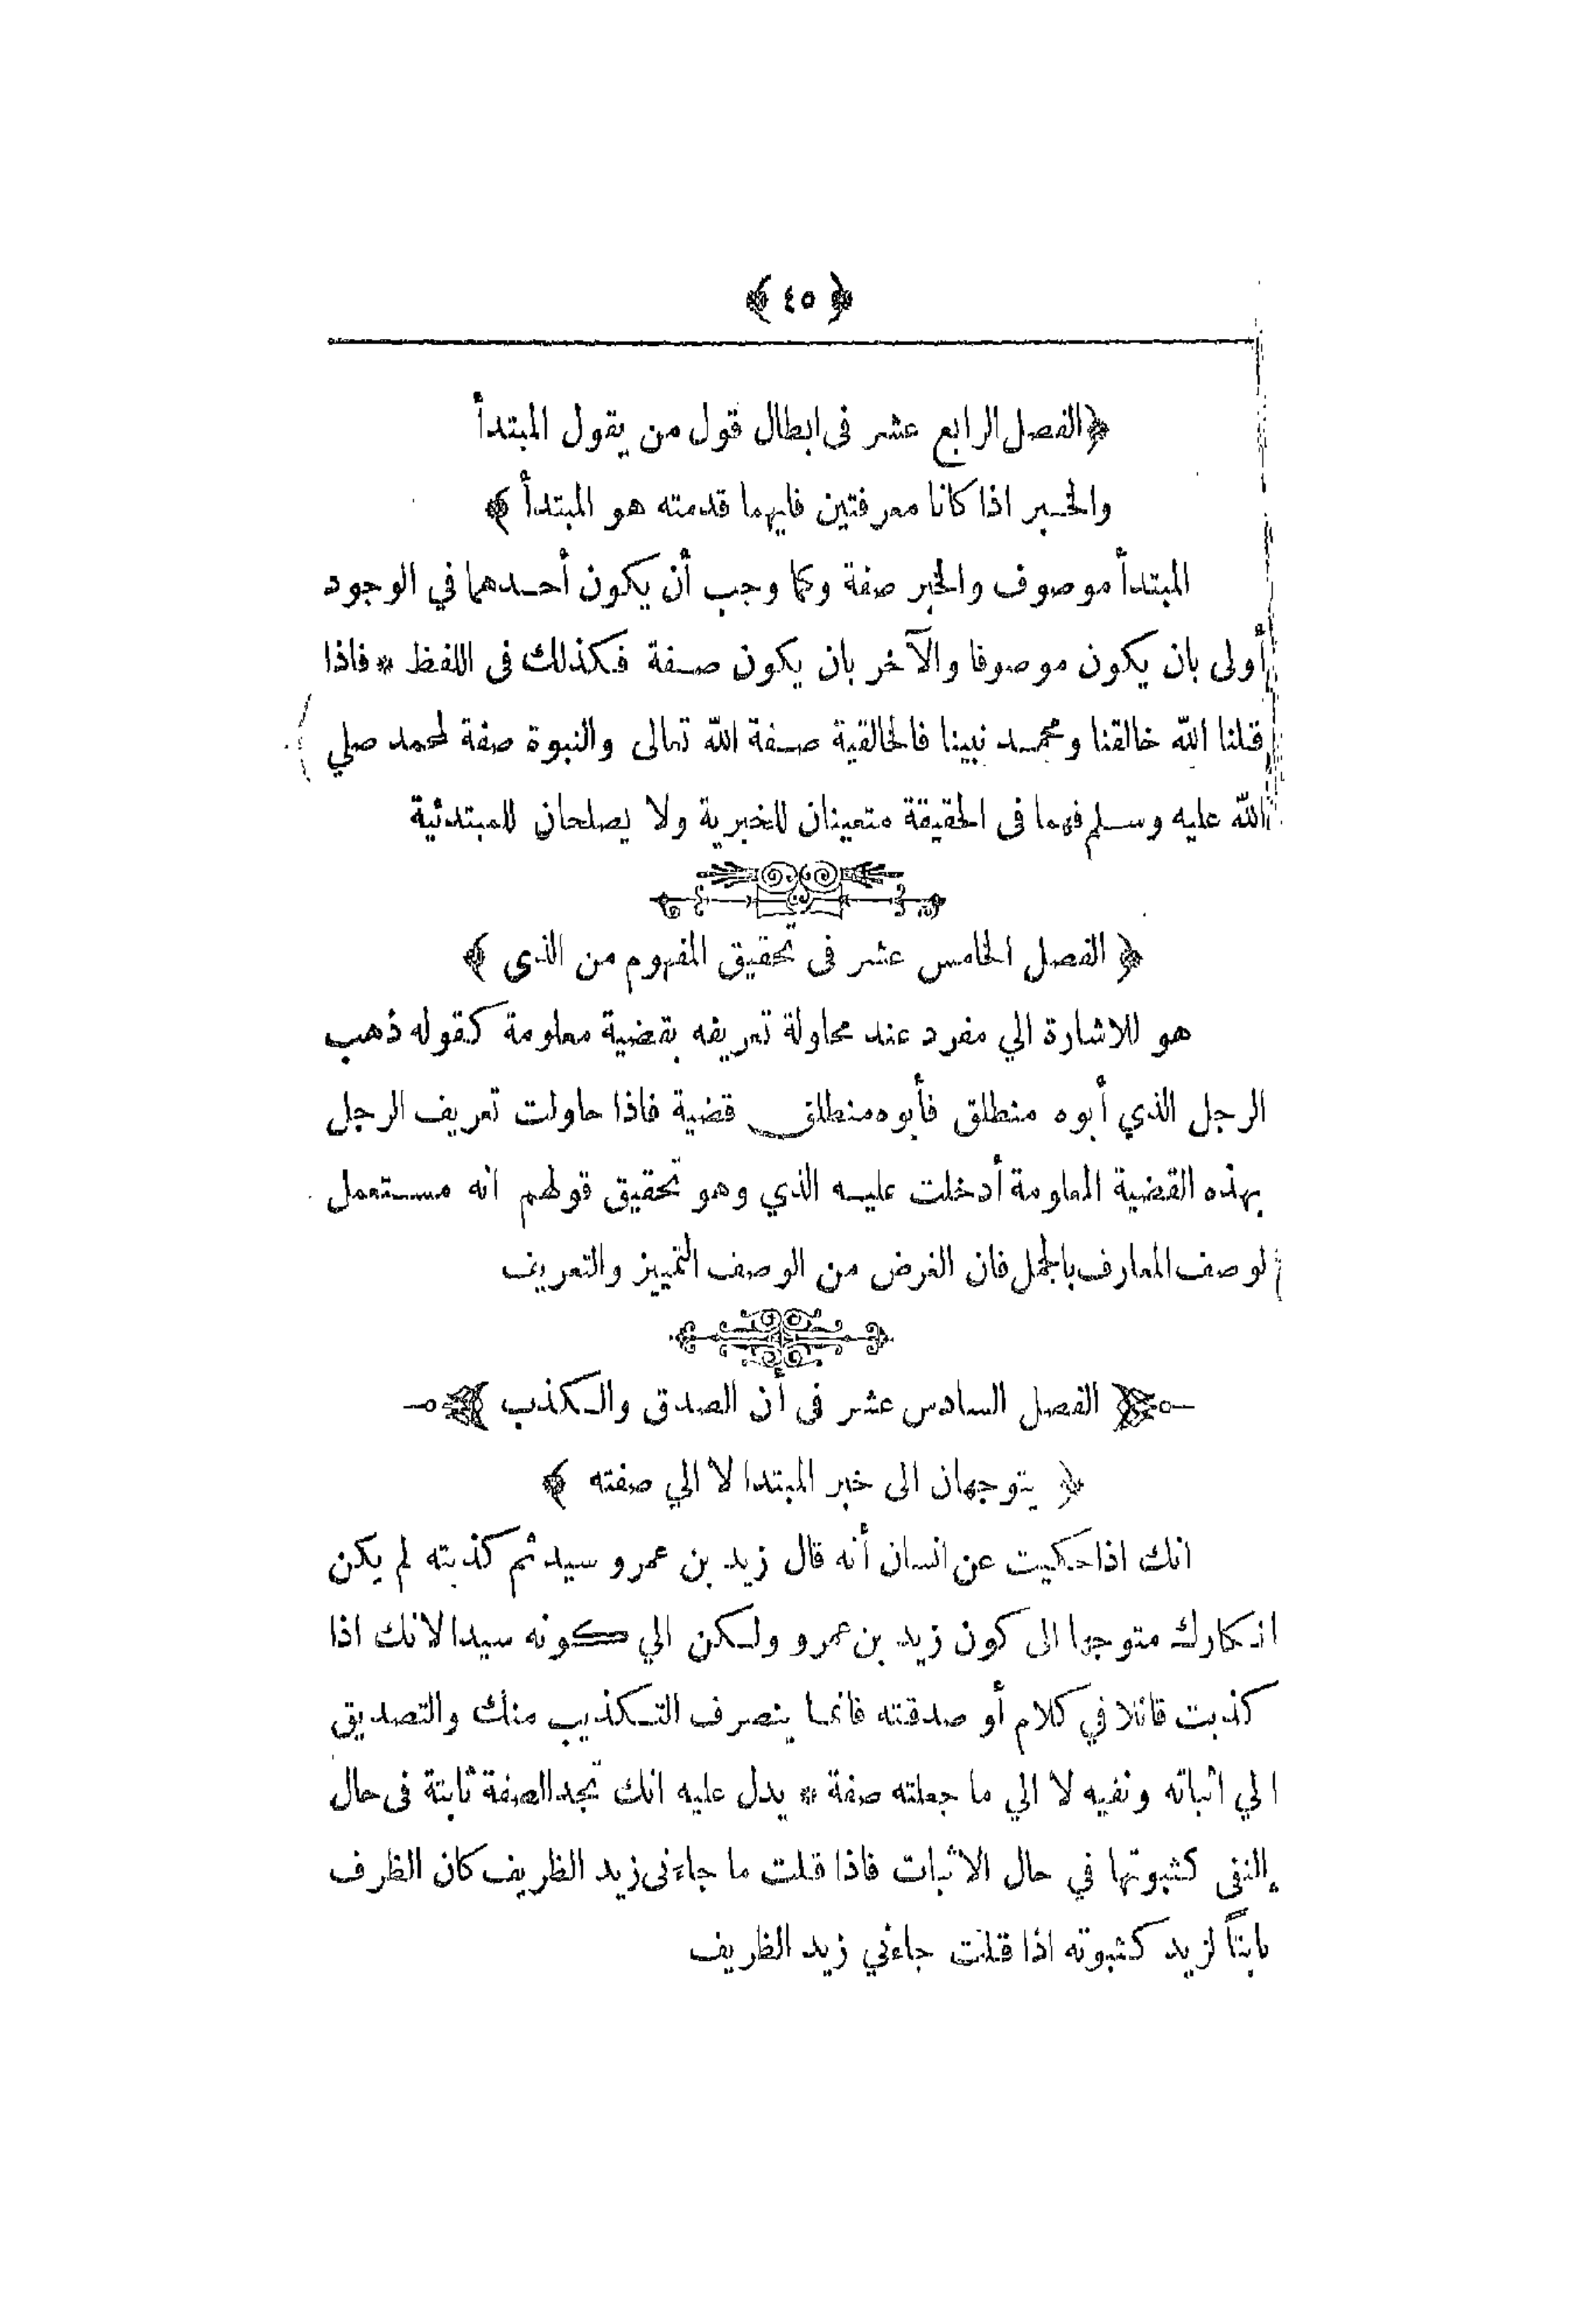 ﴿ ٤٥ ﴾
﴿الفصل الرابع عشر فى ابطال قول من يقول المبتدأ
والخبر اذا كانا معرفتين فايهما قدمته هو المبتدأ ﴾
المبتدأ موصوف والخبر صفة وكما وجب أن يكون أحدهما في الوجود
أولى بان يكون موصوفا والآخر بان يكون صفة فكذلك فى اللفظ * فاذا
قلنا الله خالقنا ومحمد نبينا فالخالقية صفة الله تعالى والنبوة صفة لمحمد صلي
الله عليه وسلم فهما فى الحقيقة متعينان للخبرية ولا يصلحان للمبتدئية
﴿ الفصل الخامس عشر فى تحقيق المفهوم من الذى ﴾
هو للاشارة الي مفرد عند محاولة تعريفه بقضية معلومة كقوله ذهب
الرجل الذي أبوه منطلق فأبوه منطلق قضية فاذا حاولت تعريف الرجل
بهذه القضية المعلومة أدخلت عليه الذي وهو تحقيق قولهم انه مستعمل
لوصف المعارف بالجمل فان الغرض من الوصف التمييز والتعريف
﴿ الفصل السادس عشر فى أن الصدق والكذب ﴾
﴿ يتوجهان الى خبر المبتدا لا الي صفته ﴾
انك اذا حكيت عن انسان أنه قال زيد بن عمرو سيد ثم كذبته لم يكن
انكارك متوجها الى كون زيد بن عمرو ولكن الي كونه سيدا لانك اذا
كذبت قائلا في كلام أو صدقته فانما ينصرف التكذيب منك والتصديق
الي اثباته ونفيه لا الي ما جعلته صفة * يدل عليه انك تجد الصفة ثابتة فى حال
النفى كثبوتها في حال الاثبات فاذا قلت ما جاءنى زيد الظريف كان الظرف
ثابتاً لزيد كثبوته اذا قلت جاءني زيد الظريف